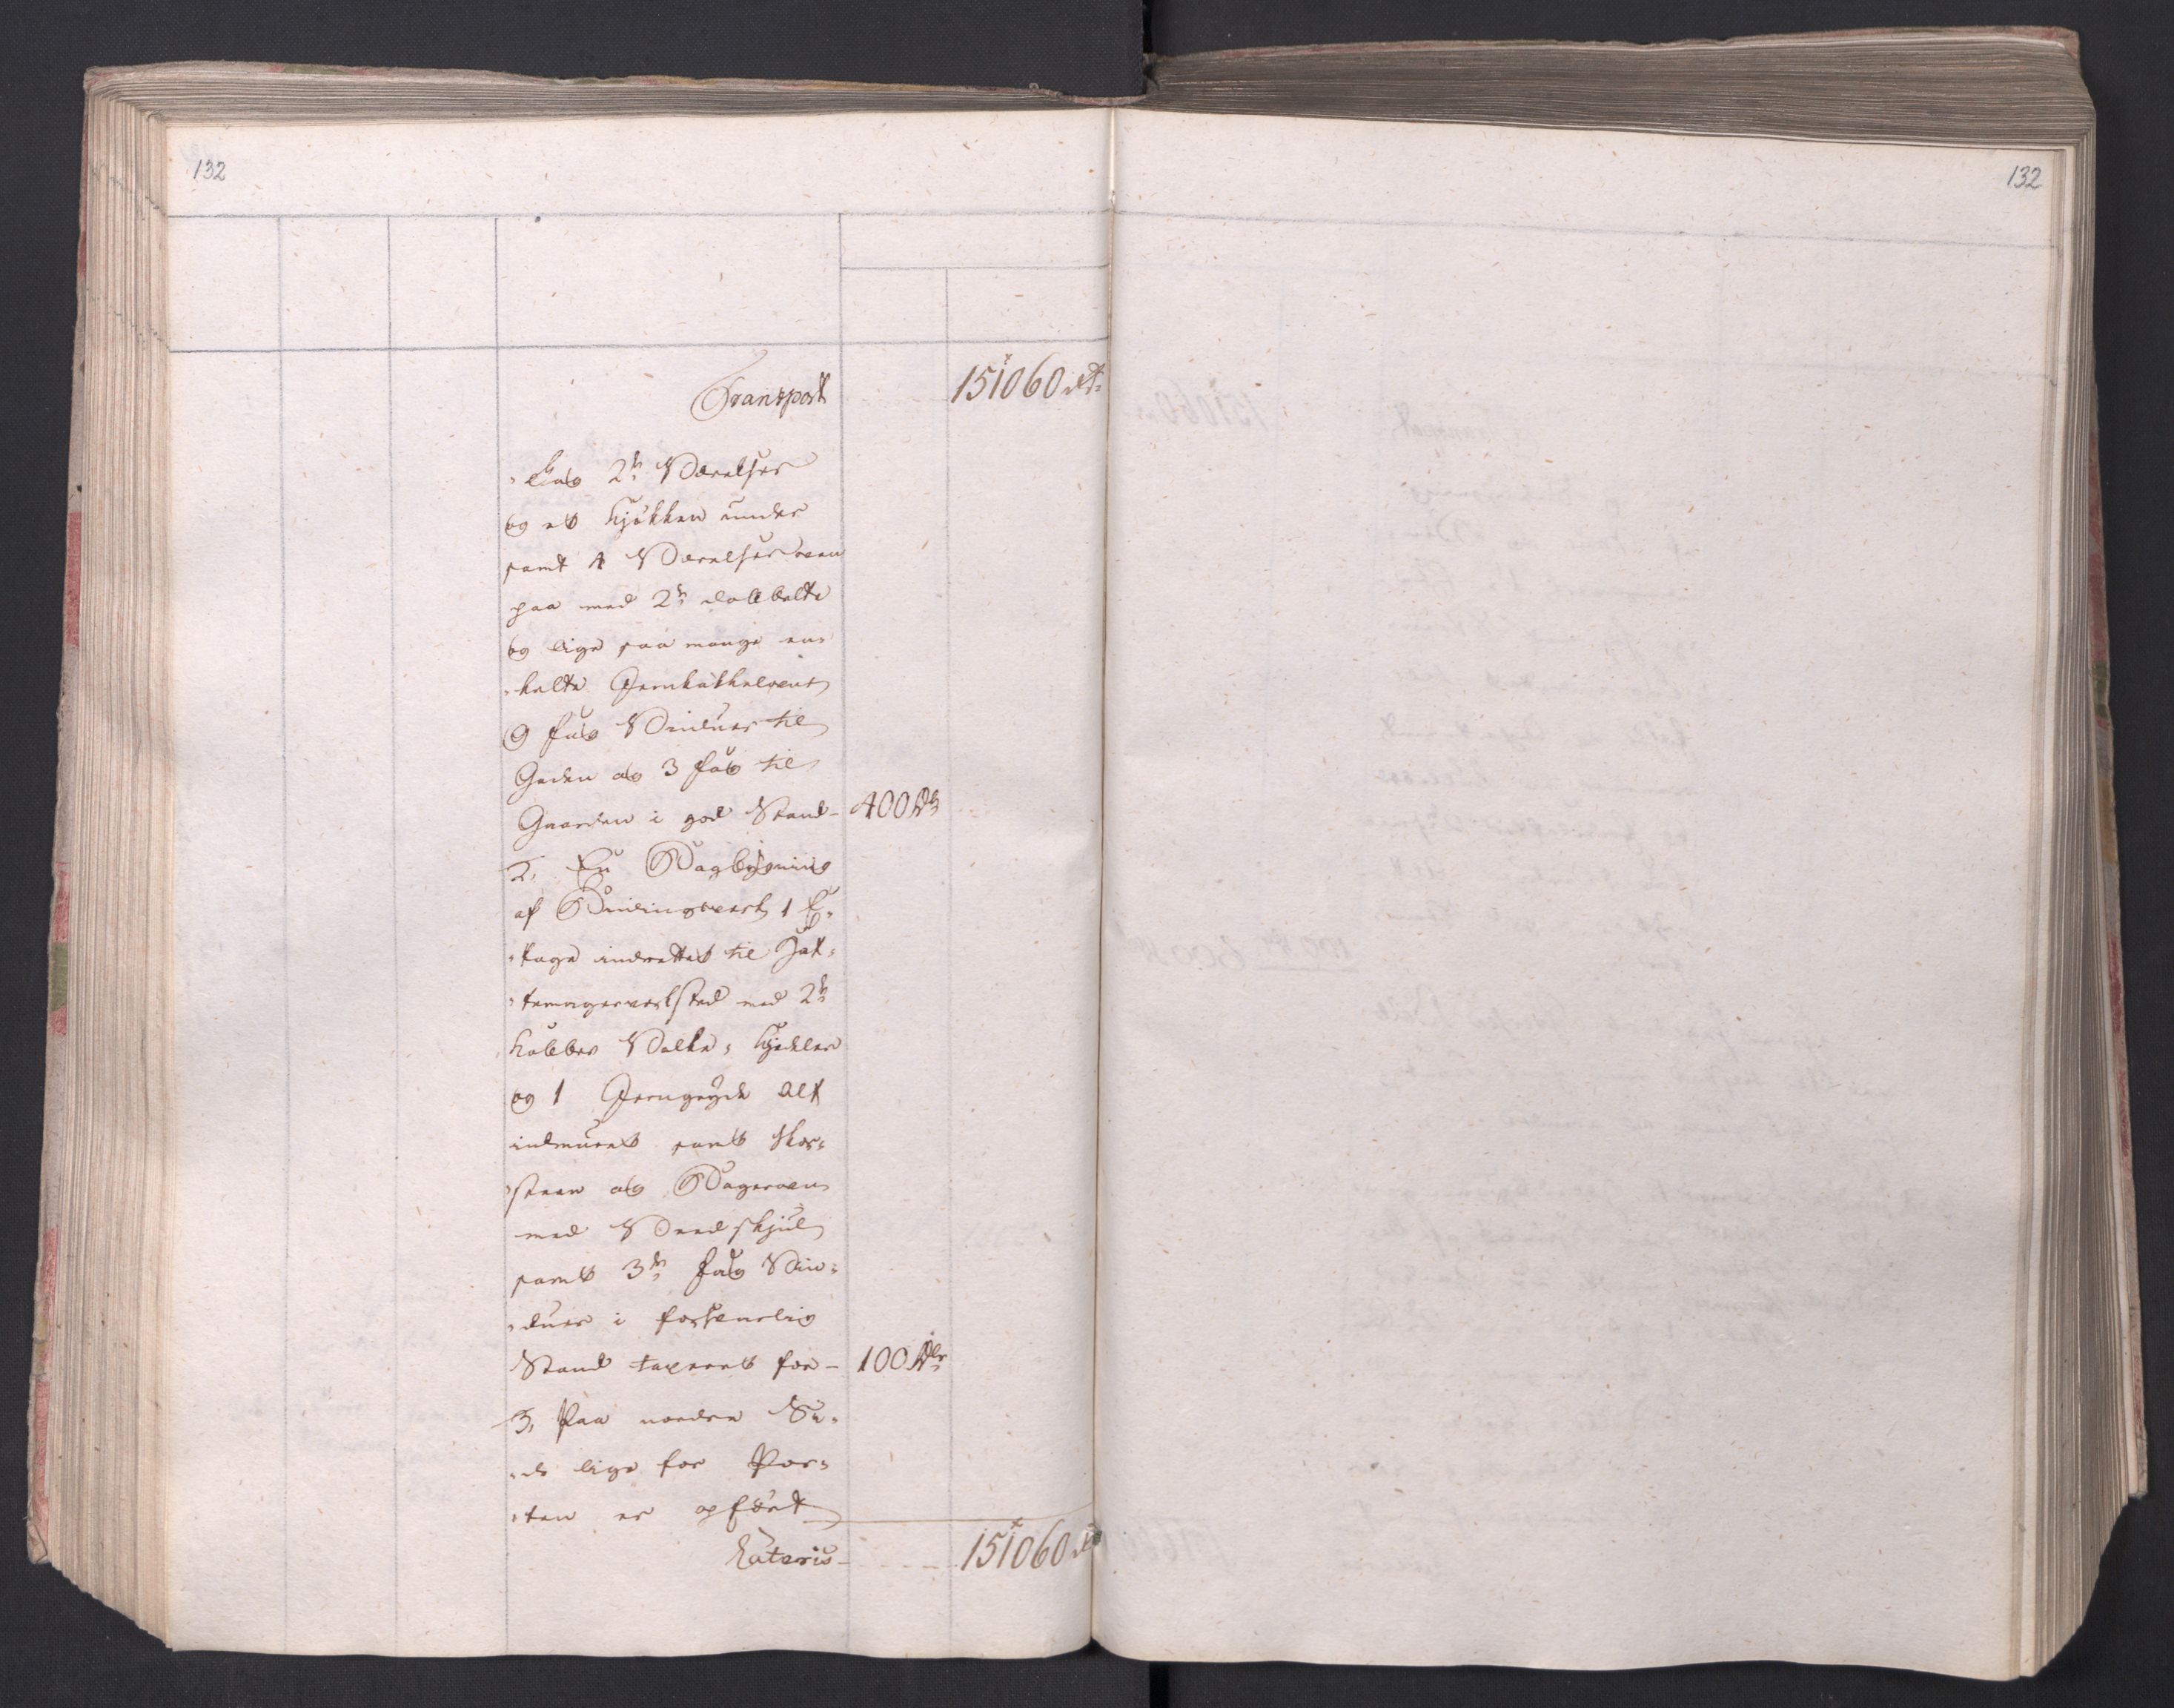 132
132
Transport 151060 rd
-ket 2de Værelser
og et Kjøkken under
samt 4 Værelser oven
paa med 2de dobbelte
og lige saa mange en-
-kelte Jernkakkelovne
9 Fag Vinduer til
Gaden og 3 Fag til
Gaarden i god Stand - 400 Rd
2, En Bagbygning
af Bindingsverk 1 E-
-tage indrettet til Hat-
-temagerverksted med 2de
Kobber Valke-Kjedler
og 1 Jerngryde alt
indmuret samt Skor-
-steen og Bagerovn
med Vedskjul
samt 3de Fag Vin-
-duer i forsvarlig
Stand taxeret for - 100 Rdr
3, Paa nordre Si-
-de lige for Por-
-ten er opført
Lateris - 151060 rd